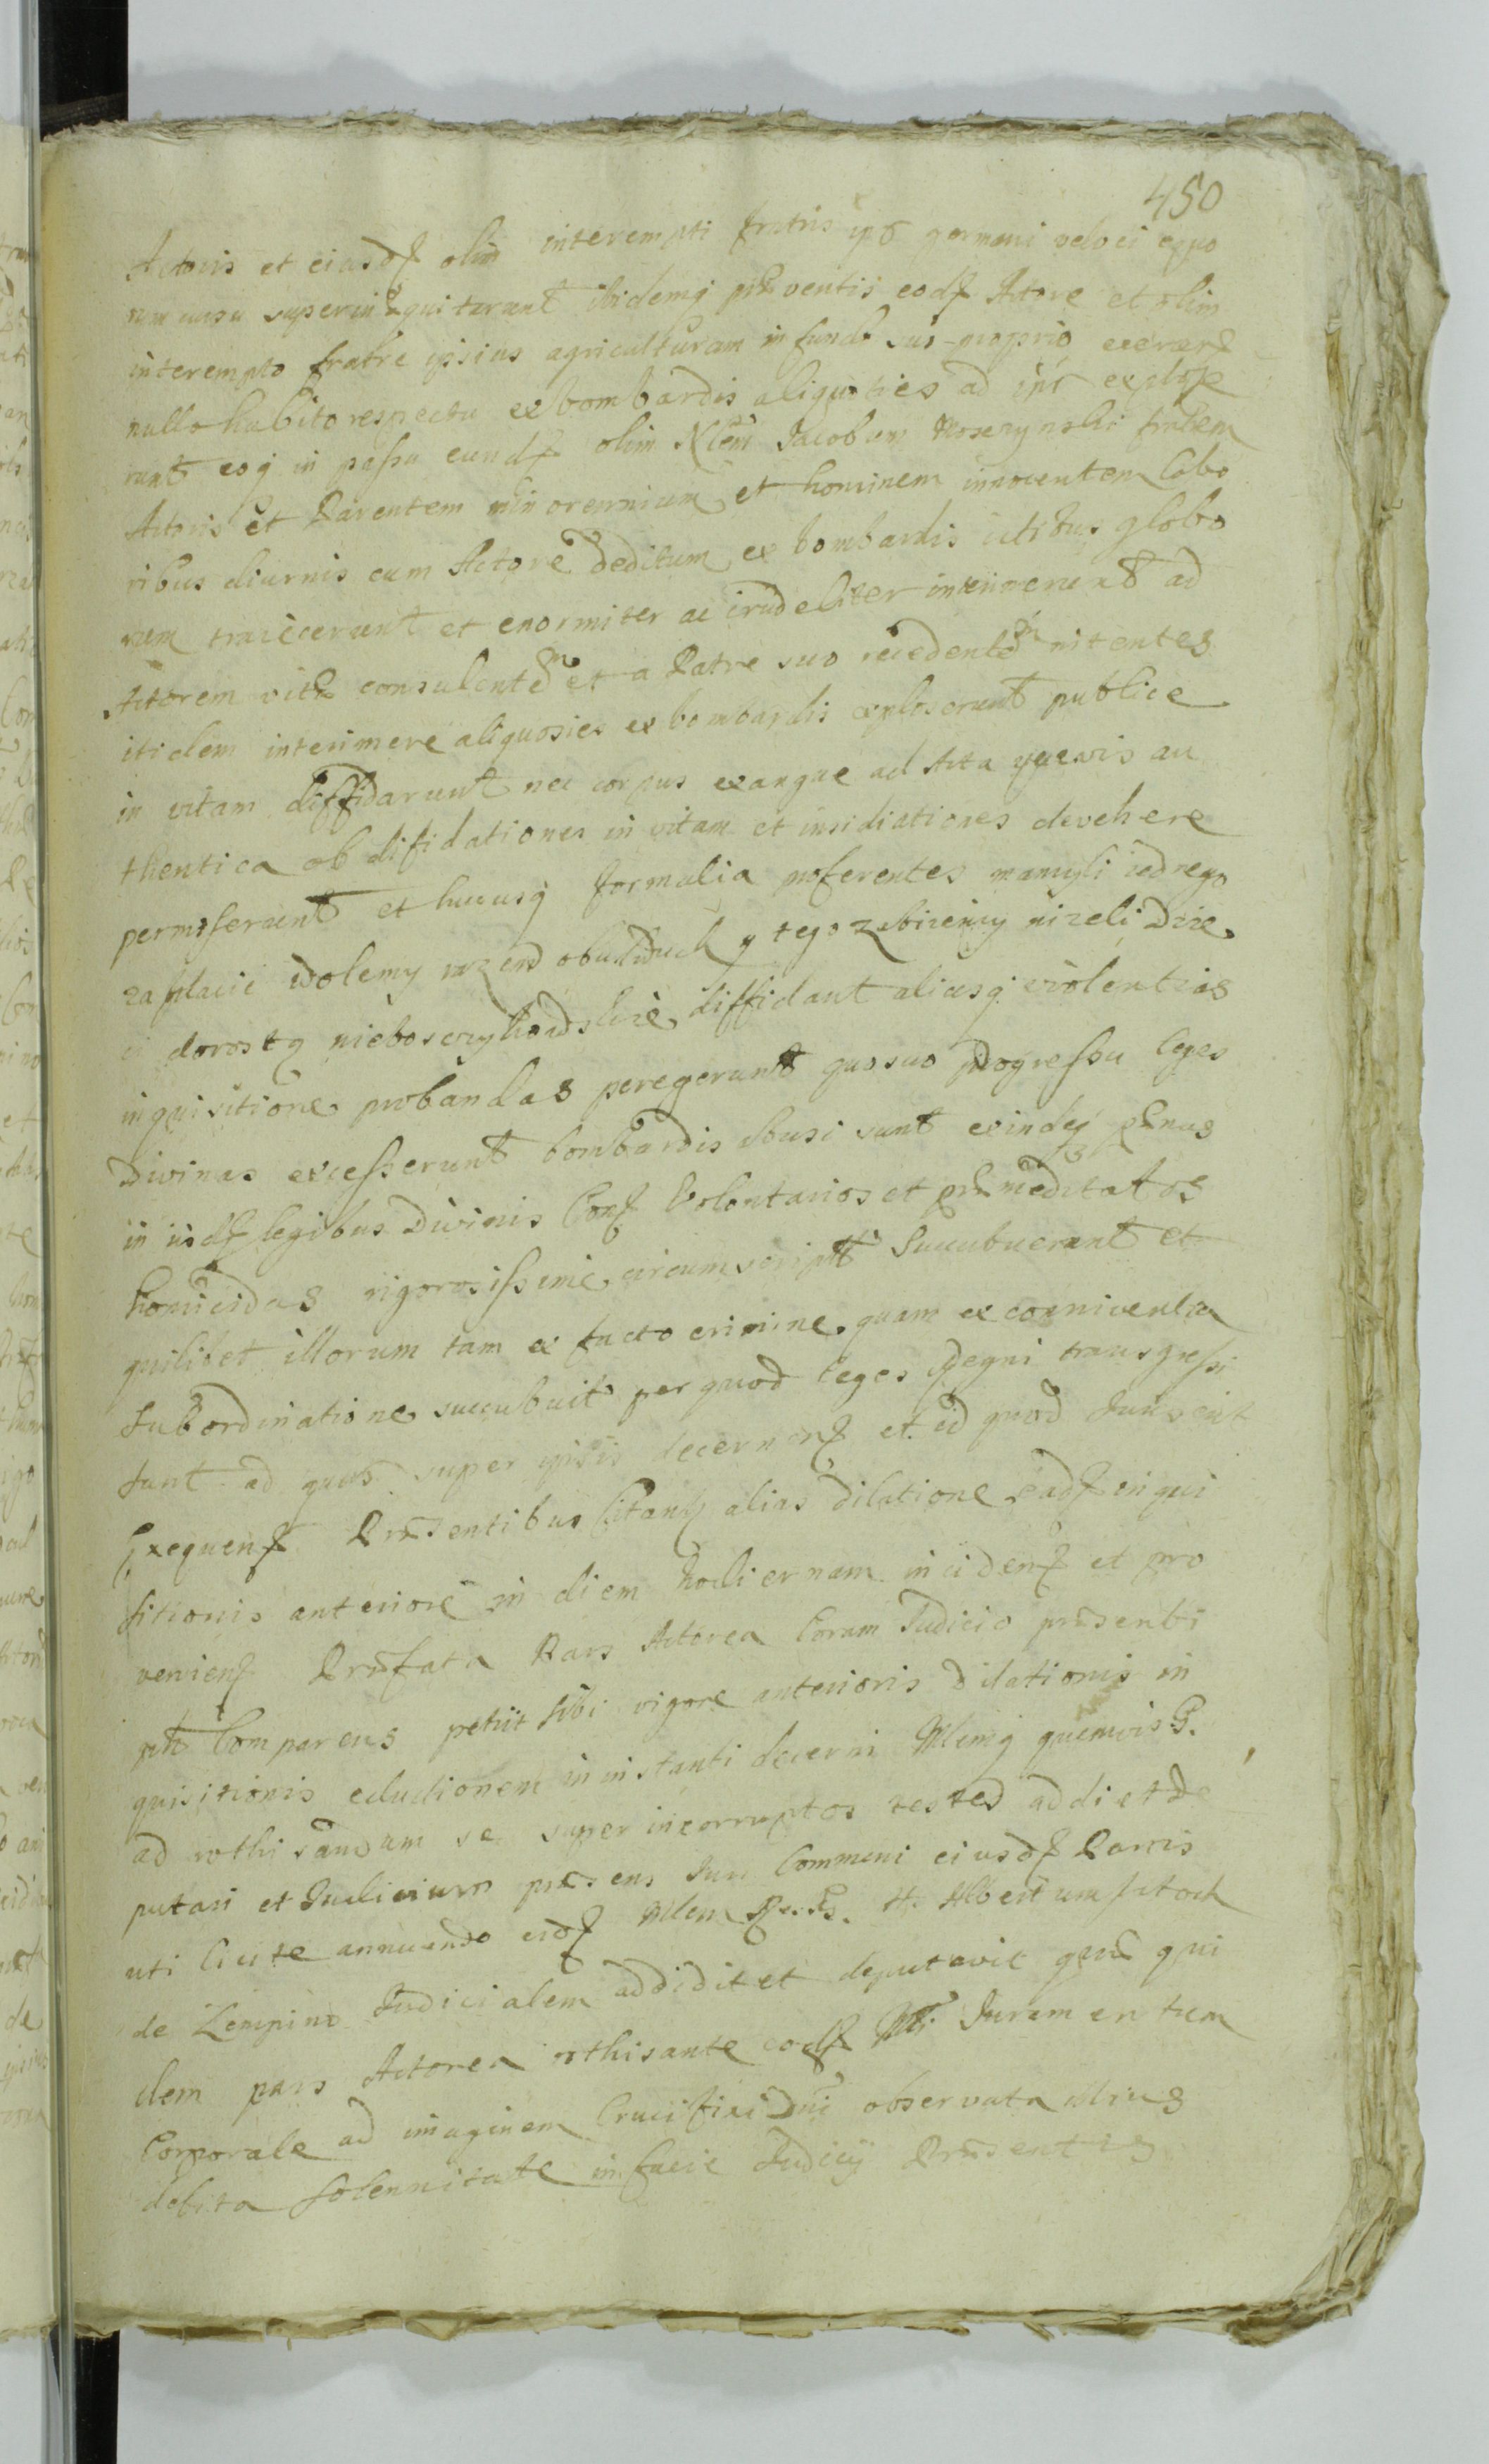 450
Actoris et eiusdɇ olim interempti fratris ips germani veloci equo
rum cursu superinequitarunt ibidemq̨ prӕventis eodɇ Actore et olim
interempto fratre ipsius agriculturam in fundo suo proprio exercere
nullo habito respectu ex bombardis aliquoties ad ips explose
runt eoq̨ in passu eundɇ olim Nlem Jacobum fratrem
Actoris et Parentem minorennium et hominem innocentem labo
ribus diurnis cum Actore deditum ex bombardis ictibus globo
rum traiecerunt et enormiter ac crudeliter interimerunt ad
Actorem vitӕ consulentem et a Patre suo recedentem nitentes
itidem interimere aliquoties ex bombardis exploserunt publice
in vitam diffidarunt nec corpus exangue ad Acta quӕvis au
thentica ob difidationes in vitam et insidiationes devehere
permiserunt et hucusq̨ formalia proferentes mamyli iednego
zaplacic wolemy wziend obudwuch y tego zbiiemy nizeli dzie
ci dorostą nieboszczykowskie, diffidant aliasq̨ violentias
inquisitione probandas peregerunt quo suo progressu leges
Divinas excesserunt bombardis abusi sunt exindeq̨ pӕnas
in iisdɇ legibus Divinis Conɇ Volontarios et prӕmeditatos
homicidas rigorosissime circumscript Succubuerunt et
quilibet illorum tam ex facto crimine quam ex conniventia
Subordinatione succubuit per quod leges Regni transgressi
sunt ad quas super ipsis decernenɇ et id quod Juris erit
Exequenɇ Prӕsentibus Citantɇ alias dilatione eadɇ inqui
sitionis anteriore in diem hodiernam incidenɇ et pro
venienɇ Prӕfata Pars Actorea Coram Judicio prӕsenti
ptt Comparens petiit sibi vigore anterioris dilationis in
quisitionis eductionem in instanti decerni Mlemq̨ quemvis G.
ad rothisandum se super incorruptos testes addi et de
putari et Judicium prӕsens Juri Communi eiusdɇ Partis
uti licite annuendo eidɇ Mlem H. Albertum
de Zempino Judicialem addidit et deputavit quӕ qui
dem pars Actorea rothisante eodɇ Mli Juramentum
Corporale ad imaginem Crucifixi Dni observata
debita Solennitate in facie Judicij Prӕsentis